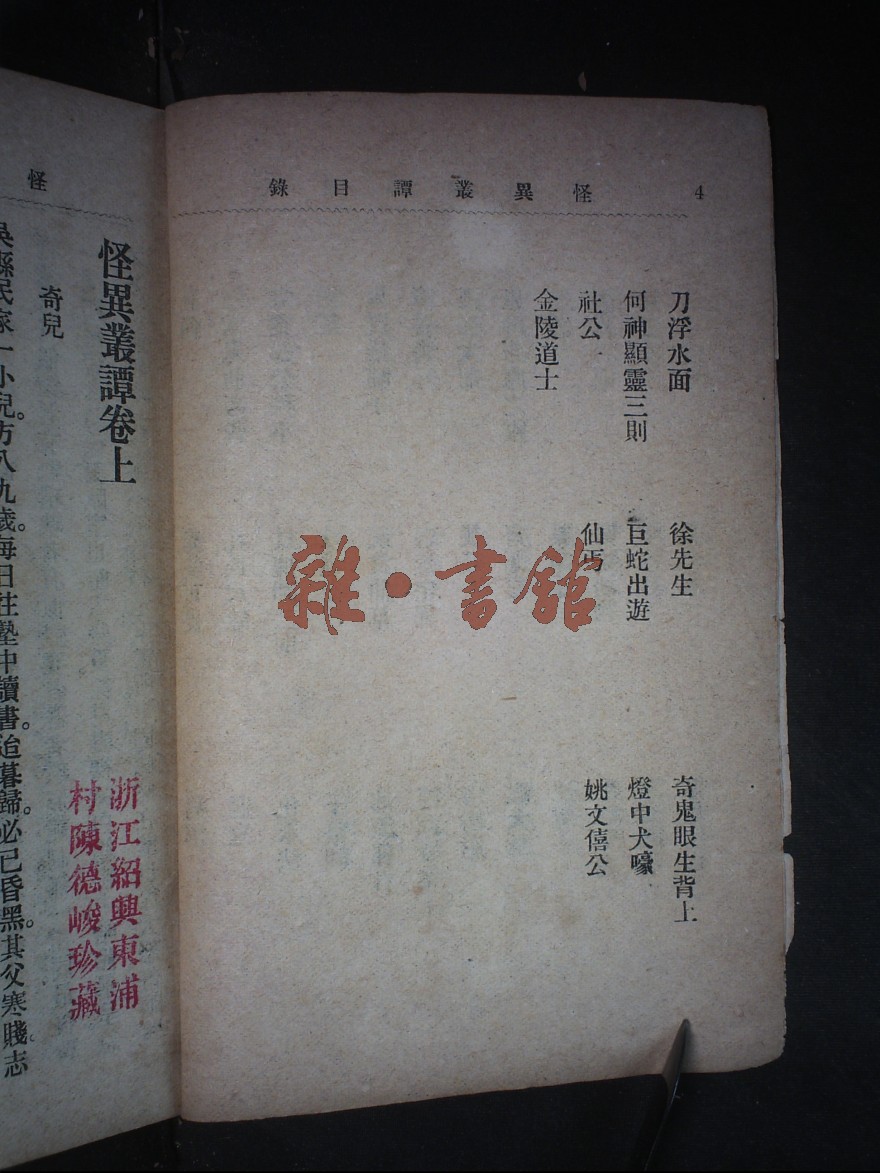 怪異叢譚目錄 4
刀浮水面 徐先生 奇鬼眼生背上
何神顯靈三則 巨蛇出遊 燈中犬嚎
社公 仙丐 姚文僖公
金陵道士
雜·書館
怪
怪異叢譚卷上
浙江紹興東浦
村陳德峻珍藏
奇兒
吳縣民家一小兒。方八九歲。每日往塾中讀書。迨暮歸。必已昏黑。其父寒賤。志